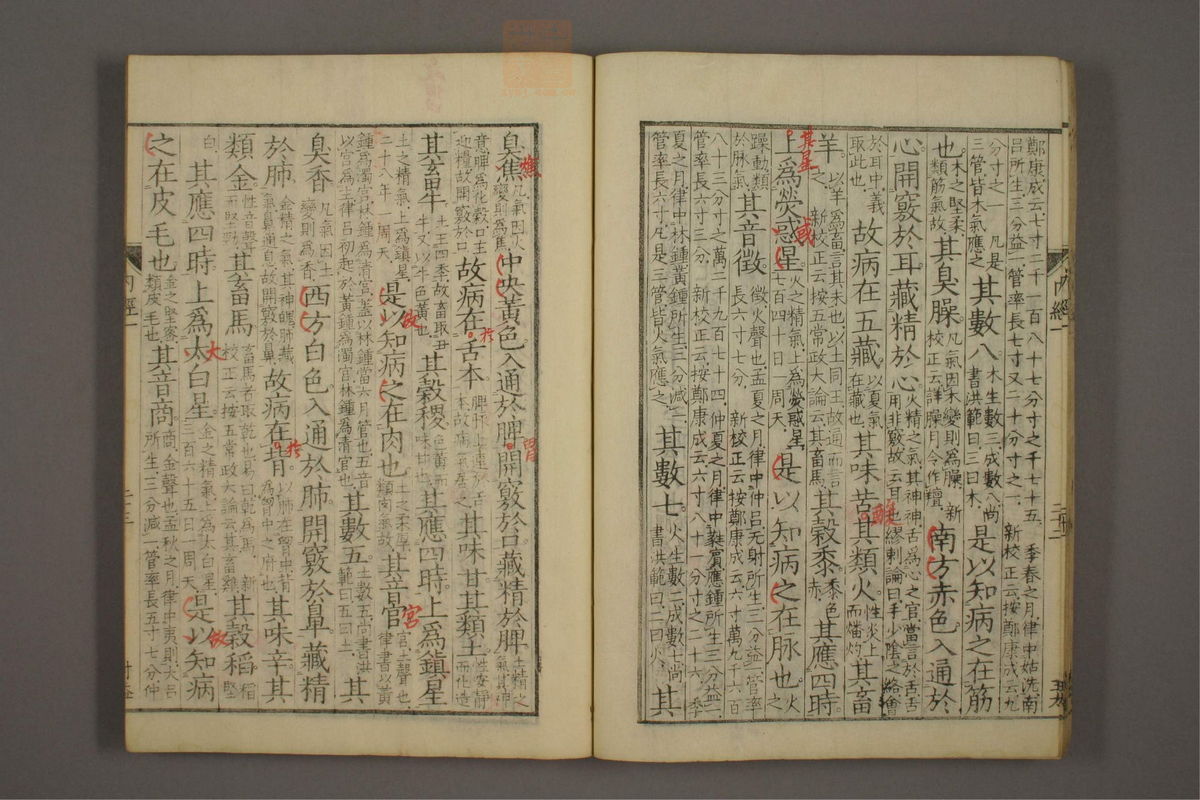 鄭康成云七寸二千一百八十七分寸之千七十五 季春之月律中姑洗南呂所生三分益一管率長七寸又二十分寸之一 新校正云按鄭康成云九
分寸之一 凡是三管皆木氣應之 其數八 木生數三成數八尚書洪範曰三曰木 是以知病之在筋
也 木之堅柔類筋氣故 其臭臊 凡氣因木變則爲臊 新校正云詳臊月令作羶 南方赤色入通於
心開竅於耳藏精於心 火精之氣其神神舌爲心之官當言於舌舌用非竅故云耳也繆刺論曰手少陰之絡會
於耳中義取此也 故病在五藏 以夏氣在藏也 其味苦其類火 性炎上而燔灼 其畜
羊 以羊爲畜言其未也以土同王故通而言之 新校正云按五常政大論云其畜馬 其穀黍 黍色赤 其應四時
上爲熒惑星 火之精氣上爲熒惑星七百四十日一周天 是以知病之在脉也 火之
躁動類於脉氣 其音徵 徵火聲也孟夏之月律中仲呂无射所生三分益一管率長六寸七分 新校正云按鄭康成云六寸萬九千六百
八十三分寸之萬二千九百七十四 仲夏之月律中蕤賓應鍾所生三分益一管率長六寸三分 新校正云按鄭康成云六寸八十一分寸之二十六 季
夏之月律中林鍾黃鍾所生三分減一管率長六寸凡是三管皆火氣應之 其數七 火生數二成數七尚書洪範曰二曰火 其
内經一
臭焦 凡氣因火變則爲焦 中央黃色入通於脾開竅於口藏精於脾 土精之氣其神
意脾爲化穀口主迎糧故開竅於口 故病在舌本 脾脉上連於舌本故病氣居之 其味甘其類土 性安靜而化造
其畜牛 土王四季故畜取丑牛又以牛色黃也 其穀稷 色黃而味甘也 其應四時上爲鎮星
土之精氣上爲鎮星二十八年一周天 是以知病之在肉也 土之柔厚類肉氣故 其音宮 宮土聲也律書以黃
鍾爲濁宮林鍾爲清宮蓋以林鍾當六月管也五音以宮爲主律呂初起於黃鍾爲濁宮林鍾爲清宮也 其數五 土數五尚書洪範曰五曰土 其
臭香 凡氣因土變則爲香 西方白色入通於肺開竅於鼻藏精
於肺 金精之氣其神魄肺藏氣鼻通息故開竅於鼻 故病在背 以肺在胷中背爲胷中之府也 其味辛其
類金 性音聲而堅勁 其畜馬 畜馬者取乾也易曰乾爲馬 新校正云按五常政大論云其畜雞 其穀稻 稻堅
白 其應四時上爲太白星 金之精氣上爲太白星三百六十五日一周天 是以知病
之在皮毛也 金之堅密類皮毛也 其音商 商金聲也孟秋之月律中夷則大呂所生三分減一管率長五寸七分仲
内經一